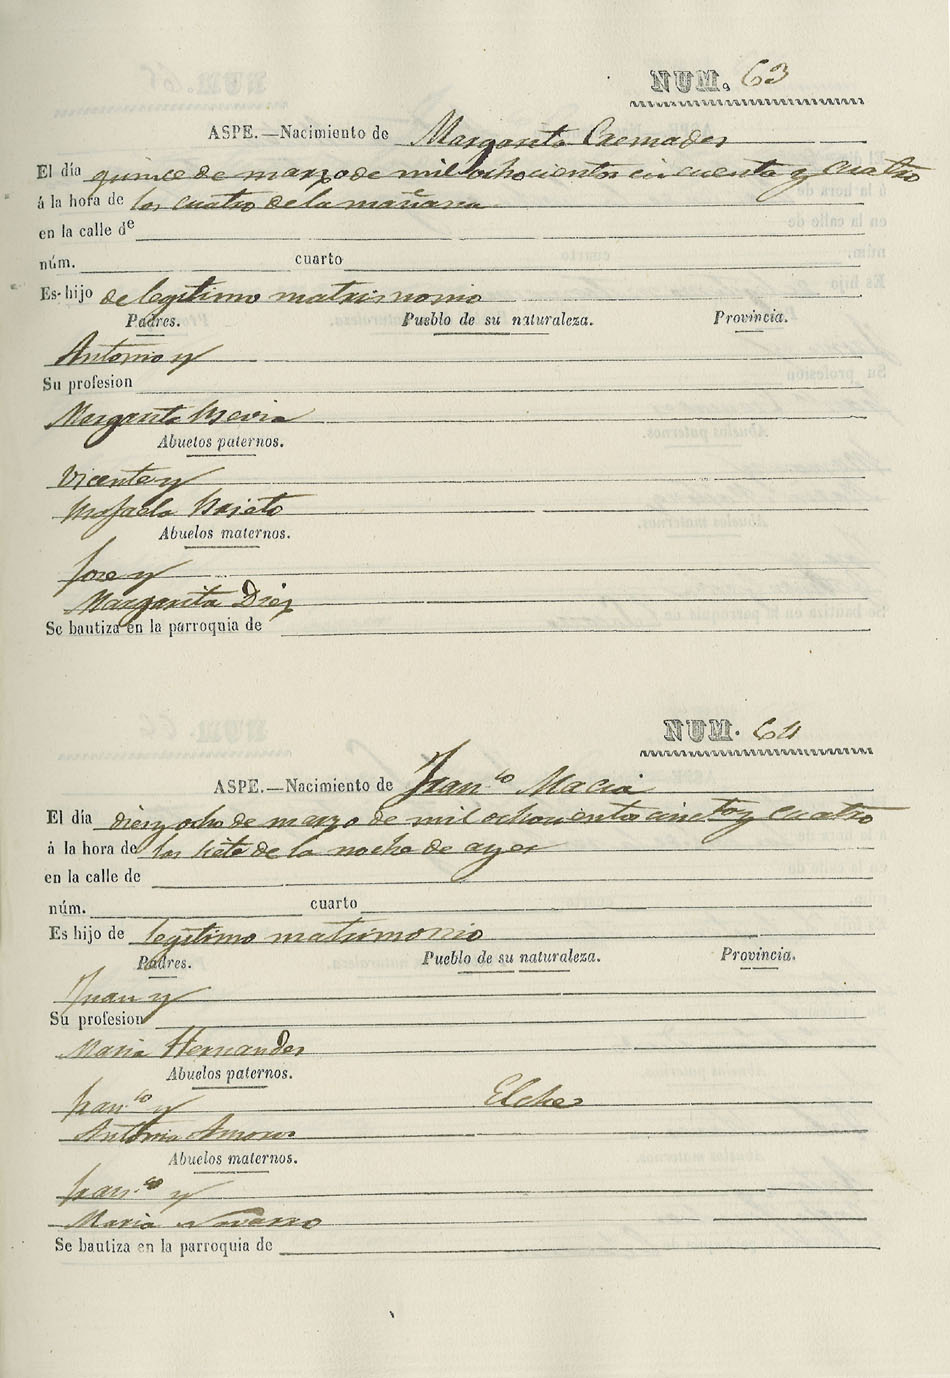 NUM. 63
ASPE.—Nacimiento de Margarita Cremades
El día quince de marzo de mil ochocientos cincuenta y cuatro
á la hora de las cuatro de la mañana
en la calle de
núm. cuarto
Es hijo de legitimo matrimonio
Padres. Pueblo de su naturaleza. Provincia.
Antonio y
Su profesion
Margarita
Abuelos paternos.
Vicente y
Mafaela
Abuelos maternos.
Jose y
Margarita Diez
Se bautiza en la parroquia de
NUM. 64
ASPE.—Nacimiento de Fran.co Macia
El día diez y ocho de marzo de mil ochocientos cincta y cuatro
á la hora de las siete de la noche de ayer
en la calle de
núm. cuarto
Es hijo de legitimo matrimonio
Padres. Pueblo de su naturaleza. Provincia.
Juan y
Su profesion
Maria Hernandez
Abuelos paternos.
Fran.co y Elche
Antonia Amoros
Abuelos maternos.
Fran.co y
Maria Navarro
Se bautiza en la parroquia de